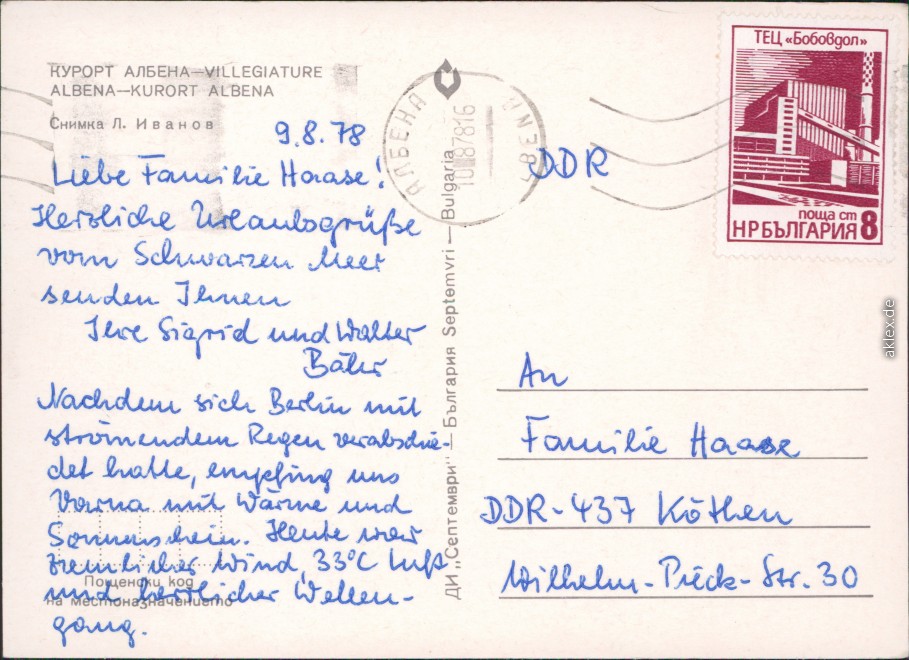 КУРОРТ АЛБЕНА—VILLEGIATURE
ALBENA—KURORT ALBENA
Снимка Л. Иванов
9.8.78
Liebe Familie Haase!
Herzliche Urlaubsgrüße
vom Schwarzen Meer
senden Ihnen
Ihre Sigrid und Walter
Bähr
Nachdem sich Berlin mit
strömendem Regen verabschie-
det hatte, empfing uns
Varna mit Wärme und
Sonnenschein. Heute war
ziemlicher Wind, 33°C Luft
und herrlicher Wellen-
gang.
Пощенски код
на местоназначението
ДИ „Септември" — България Septemvri — Bulgaria
АЛБЕНА
10.8.78 16
ТЕЦ «Бобовдол»
поща ст
НР БЪЛГАРИЯ 8
DDR
An
Familie Haase
DDR-437 Köthen
Wilhelm-Pieck-Str. 30
aklex.de